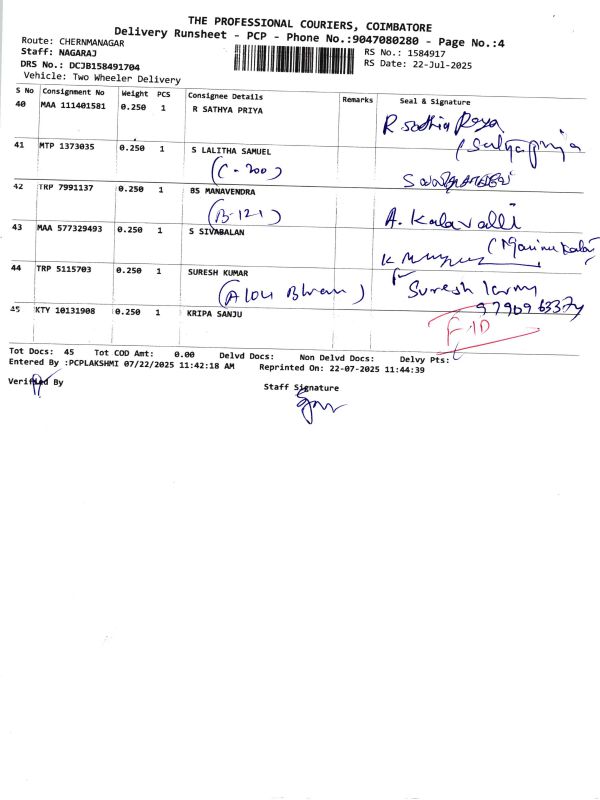 THE PROFESSIONAL COURIERS, COIMBATORE
Delivery Runsheet - PCP - Phone No.:9047080280 - Page No.:4
Route: CHERNMANAGAR
Staff: NAGARAJ
RS No.: 1584917
DRS No.: DCJB158491704
RS Date: 22-Jul-2025
Vehicle: Two Wheeler Delivery
S No Consignment No Weight PCS Consignee Details Remarks Seal & Signature
40 MAA 111401581 0.250 1 R SATHYA PRIYA
R Sathia Priya
(Sathyapriya
41 MTP 1373035 0.250 1 S LALITHA SAMUEL
(C-200)
42 TRP 7991137 0.250 1 BS MANAVENDRA
(B-121)
A. Kalavalli
43 MAA 577329493 0.250 1 S SIVABALAN
44 TRP 5115703 0.250 1 SURESH KUMAR
(A104
Suresh
45 KTY 10131908 0.250 1 KRIPA SANJU
Tot Docs: 45 Tot COD Amt: 0.00 Delvd Docs: Non Delvd Docs: Delvy Pts:
Entered By :PCPLAKSHMI 07/22/2025 11:42:18 AM Reprinted On: 22-07-2025 11:44:39
Verified By
Staff Signature